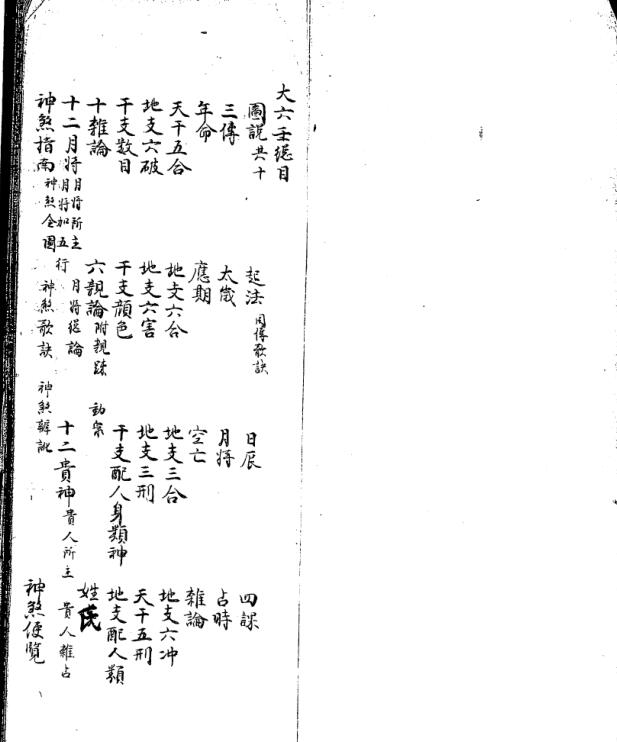 大六壬總目
圖說共十 起法 周傳歌訣 日辰 四課
三傳 太歲 月將 占時
年命 應期 空亡 雜論
天干五合 地支六合 地支三合 地支六冲
地支六破 地支六害 地支三刑 天干五刑
干支數目 干支顏色 干支配人身類神 地支配人類
十雜論 六親論 附親疎 姓氏
十二月將 月將所主 月將加五行 月將總論 十二貴神 貴人所主 貴人雜占
神煞指南 神煞全圖 神煞歌訣 神煞辨訛 神煞便覧